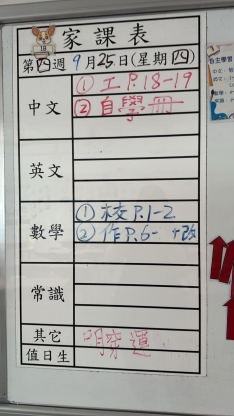 家課表
第四週 9月25日(星期四)
中文
① 工 P.18-19
② 自學冊
英文
數學
① 校 P.1-2
② 作 P.6- 改
常識
其它
值日生
自主學習